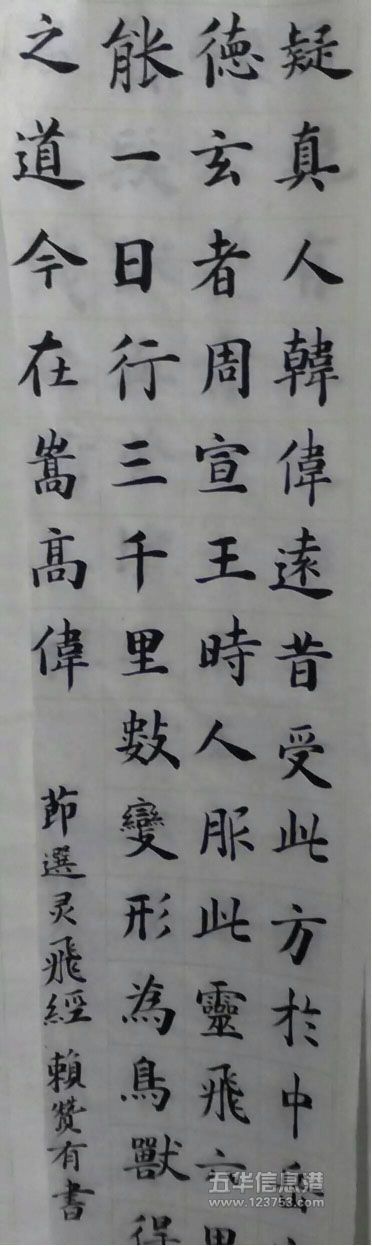 疑真人韓偉遠昔受此方於中
德玄者周宣王時人服此靈飛六甲
能一日行三千里數變形為鳥獸得
之道今在嵩高偉
節選灵飛經 賴贊有書
五华信息港
www.123753.com